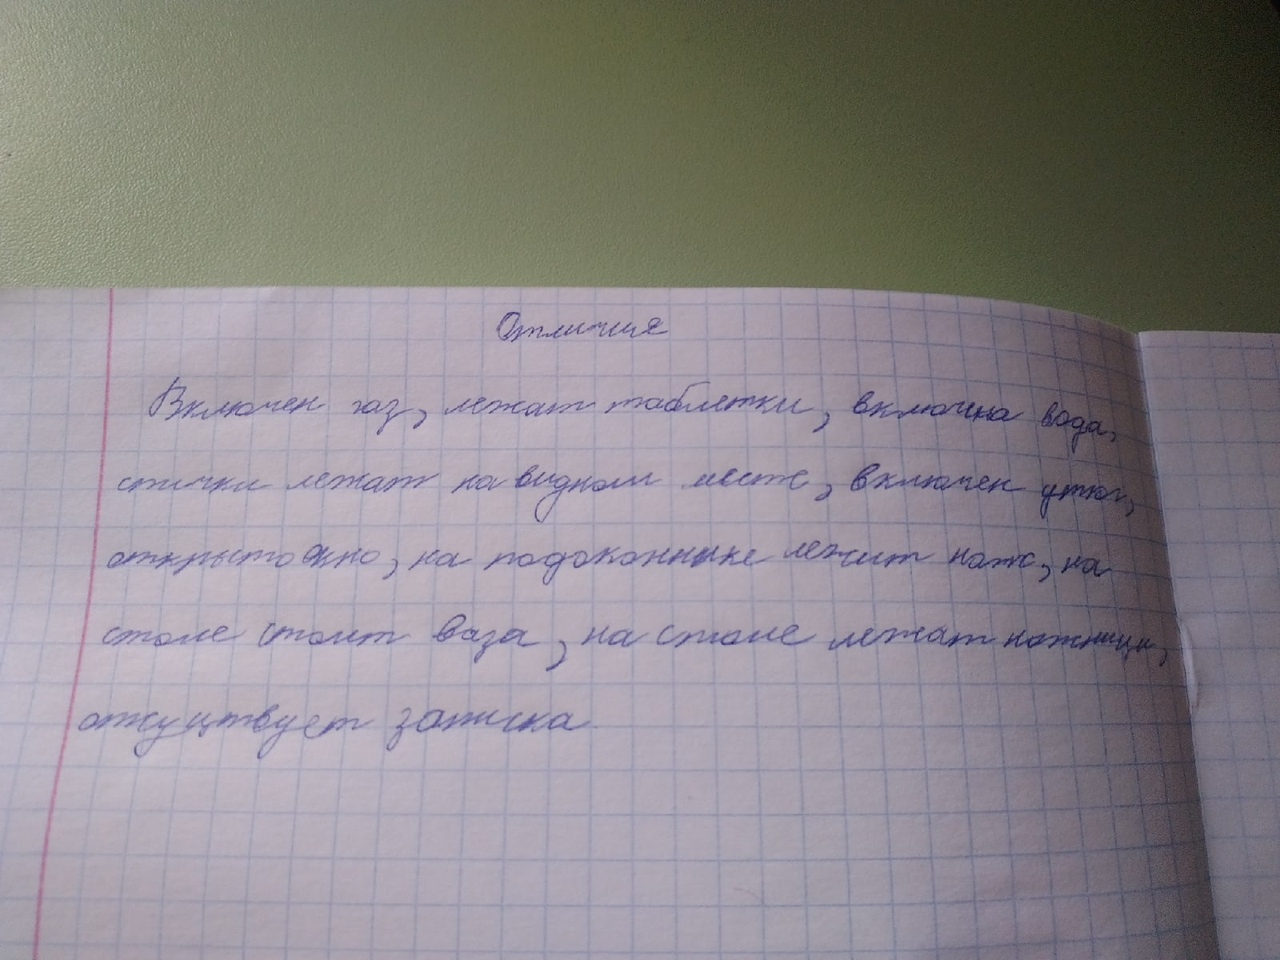 Отличия
Включен газ, лежат таблетки, включна вода,
спички лежат на видном месте, включен утюг,
открыто окно, на подоконнике лежит нож, на
столе стоит ваза, на столе лежат ножници,
отсуцтвует записка.